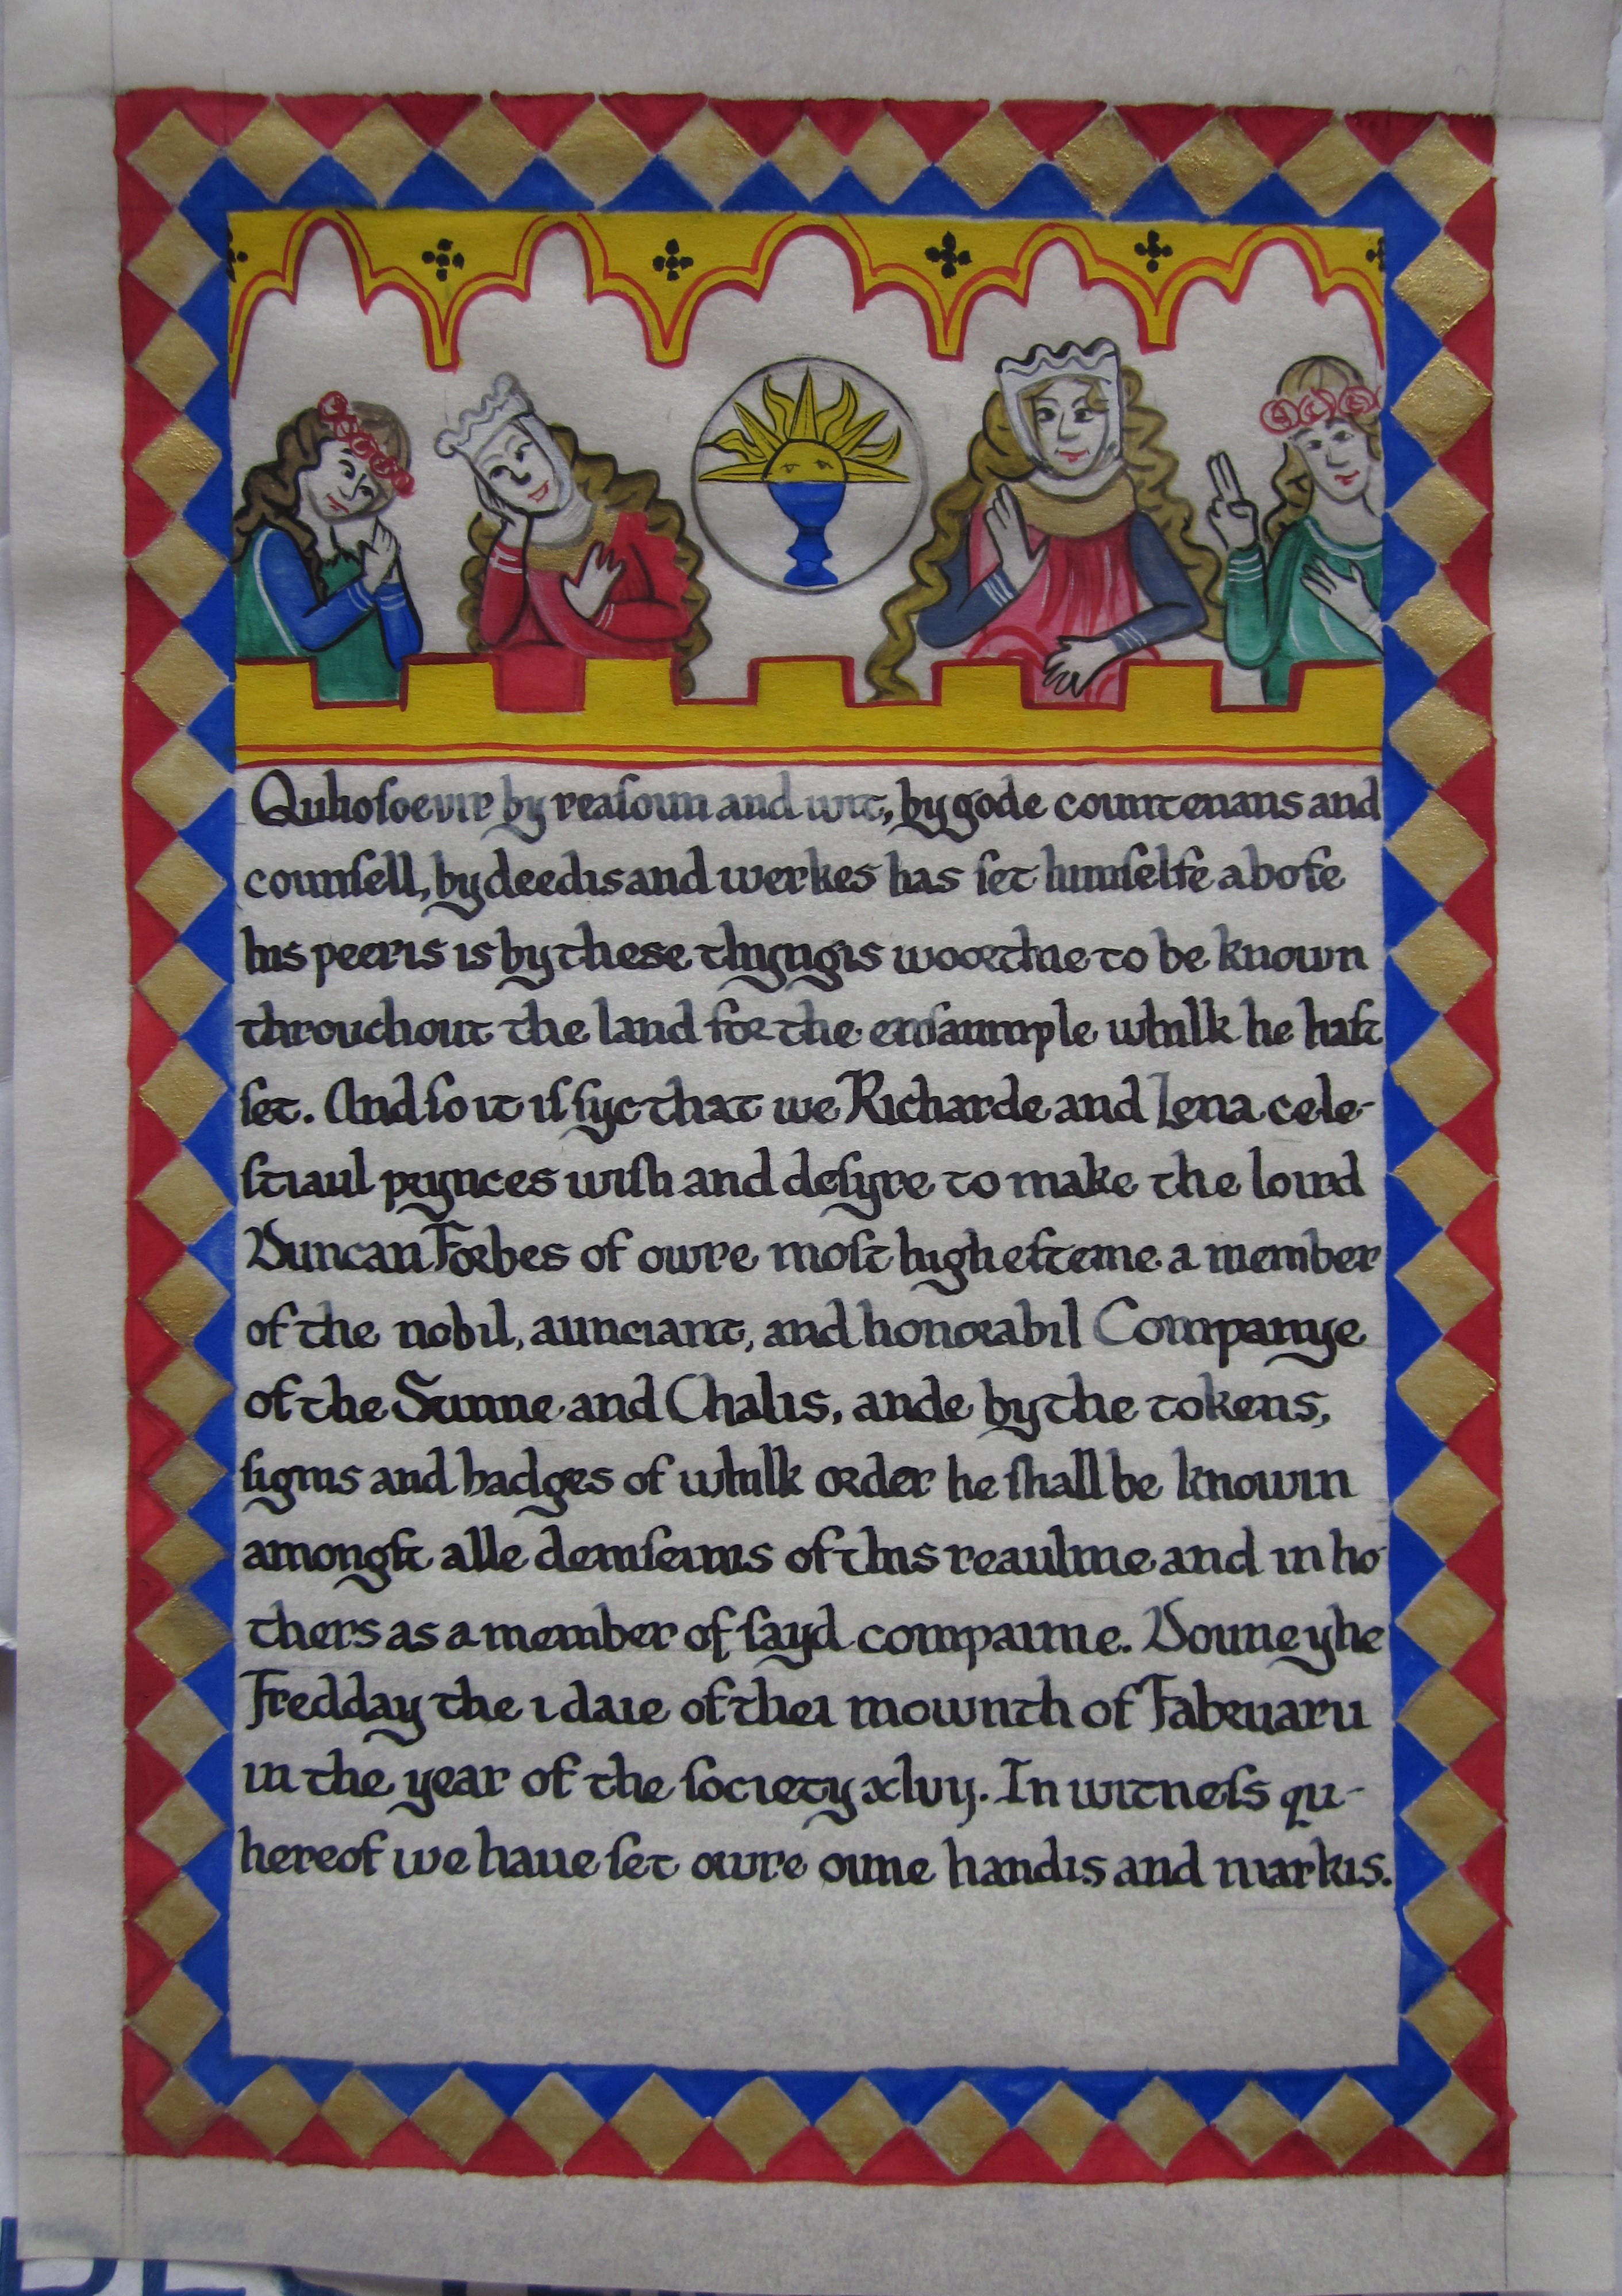 Quhosoevir by reasoun and wit, by gode countenans and
counsell, by deedis and werkes has set himselfe abofe
his peeris is by these thyngis woorthie to be known
throuchout the land for the ensaumple whilk he hast
set. And so it is syc that we Richarde and Lena cele-
stiaul prynces wish and desyre to make the loird
Duncan Forbes of owre most high esteme a member
of the nobil, aunciant, and honorabil Companye
of the Sunne and Chalis, ande by the tokens,
signis and badges of whilk order he shall be knowin
amongst alle demseins of this reaulme and in ho
thers as a member of sayd compainie. Doune yhe
Fredday the i daie of thei mownth of Fabruaru
in the year of the society xlvij. In witness qu-
hereof we haue set owre oune handis and markis.